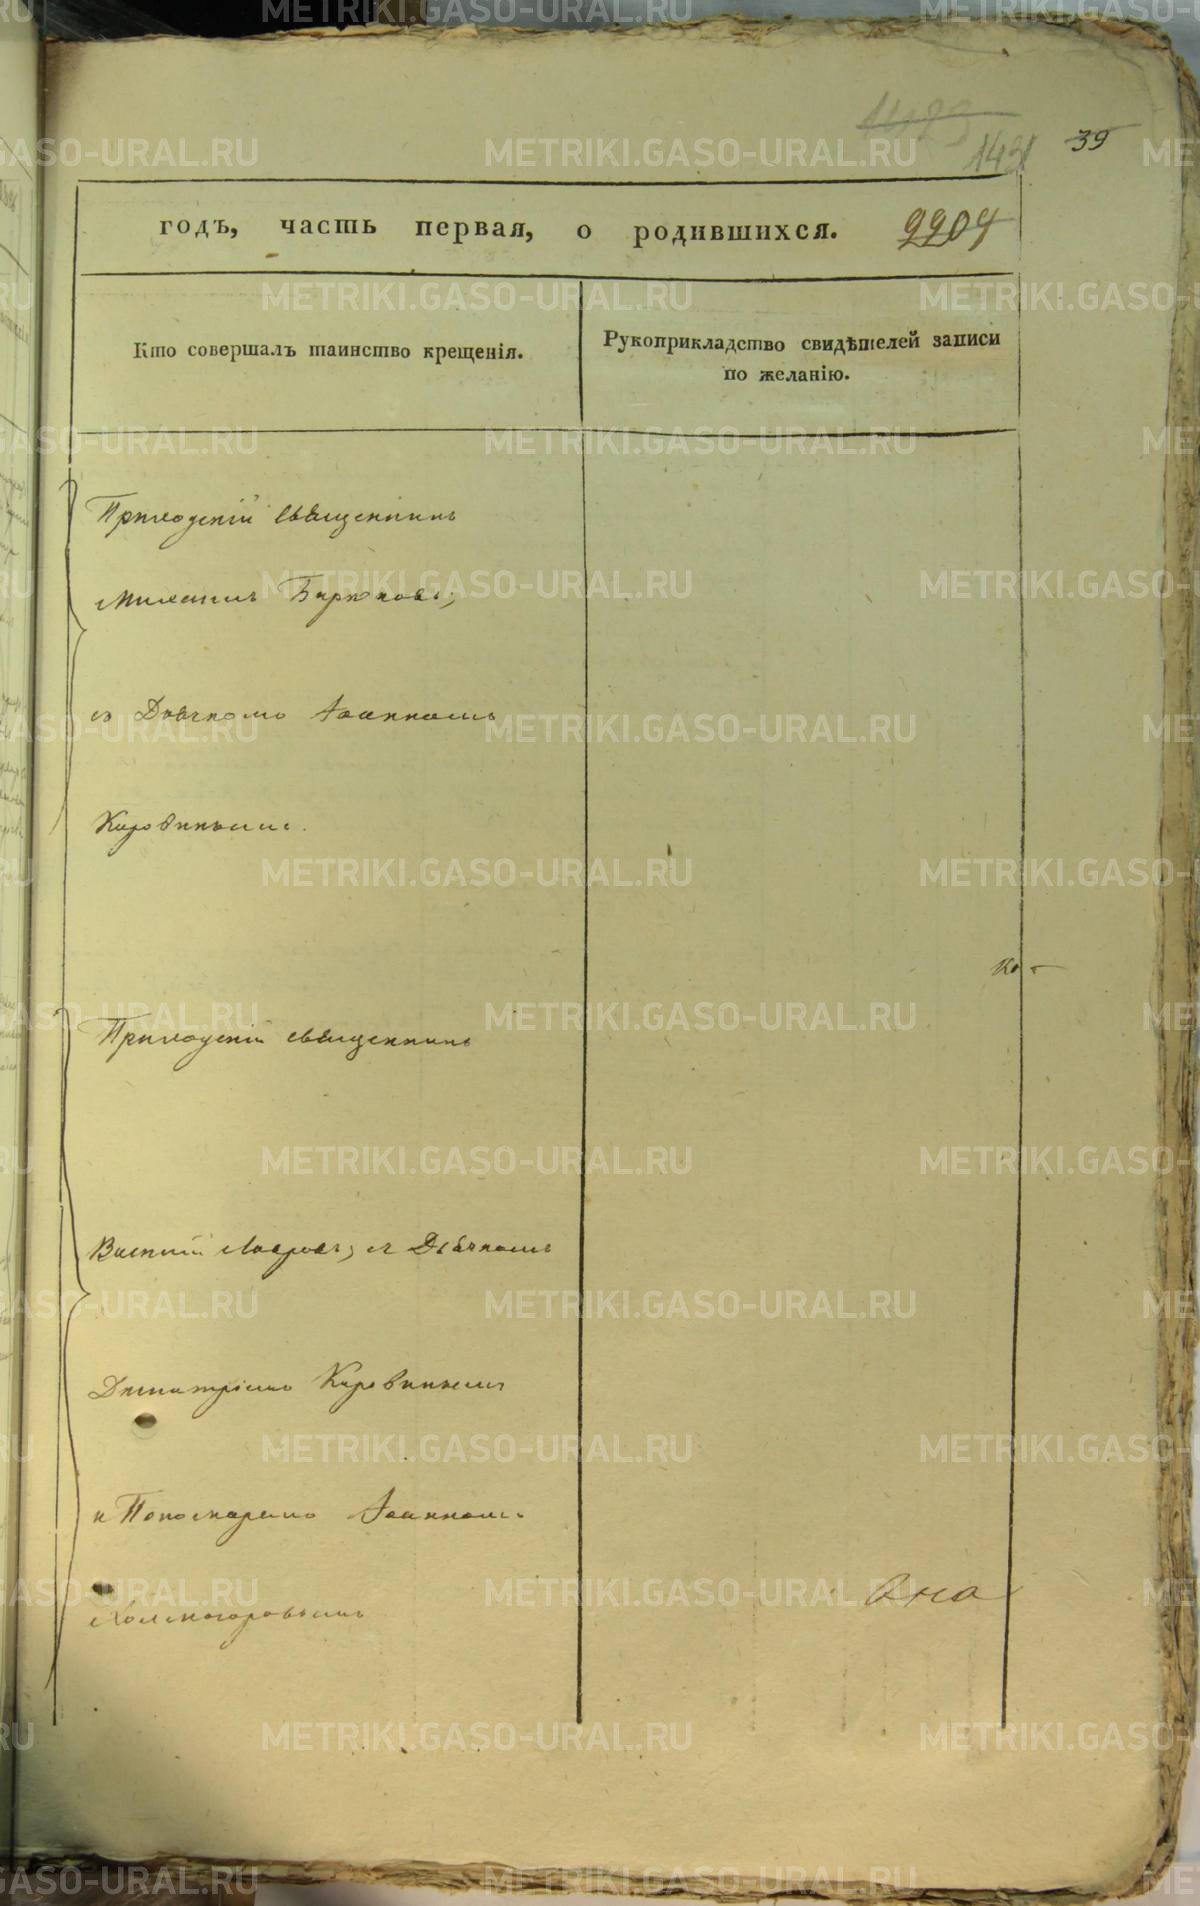 39
годъ, часть первая, о родившихся. 2204
Кто совершалъ таинство крещенія.
Рукоприкладство свидѣтелей записи
по желанію.
Приходскій священникъ
Михаилъ Бирюковъ,
съ Дьячкомъ Іоанномъ
Коровинымъ.
Приходскій священникъ
Василій Лавровъ, съ Дьячкомъ
Димитріемъ Коровинымъ
и Пономаремъ Іоанномъ
Холмогоровымъ
METRIKI.GASO-URAL.RU